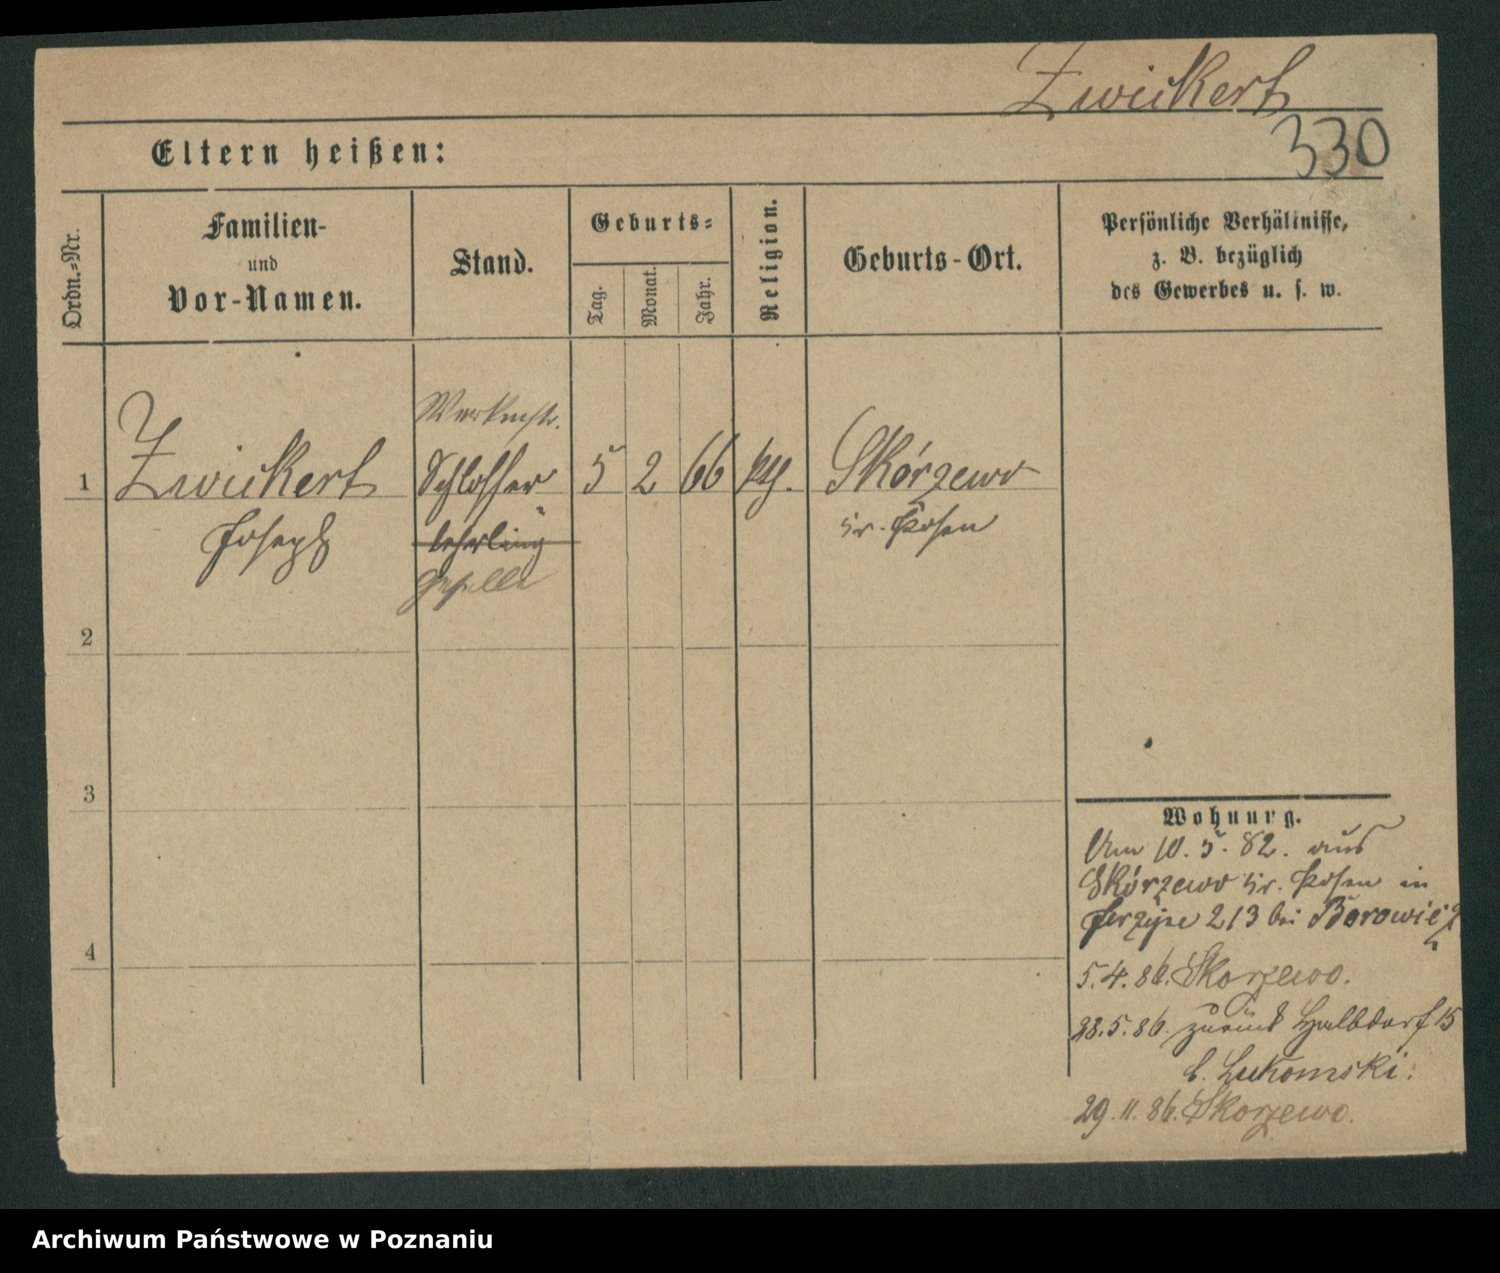 Zwickert
330
Eltern heißen:
Ordn.=Nr.
Familien-
und
Vor-Namen.
Stand.
Geburts=
Tag.
Monat.
Jahr.
Religion.
Geburts-Ort.
Persönliche Verhältnisse,
z. B. bezüglich
des Gewerbes u. s. w.
1
Zwickert
Joseph
Schlosser
lehrling
geselle
5
2
66
kth.
Skórzewo
Kr. Posen
2
3
4
Wohnung.
Am 10. 5. 82. aus
Skórzewo Kr. Posen in
Jerzyce 213 bei
5. 4. 86. Skorzewo.
28. 5. 86. zurück Halbdorf 15
b. Lukomski.
29. 11. 86. Skorzewo.
Archiwum Państwowe w Poznaniu